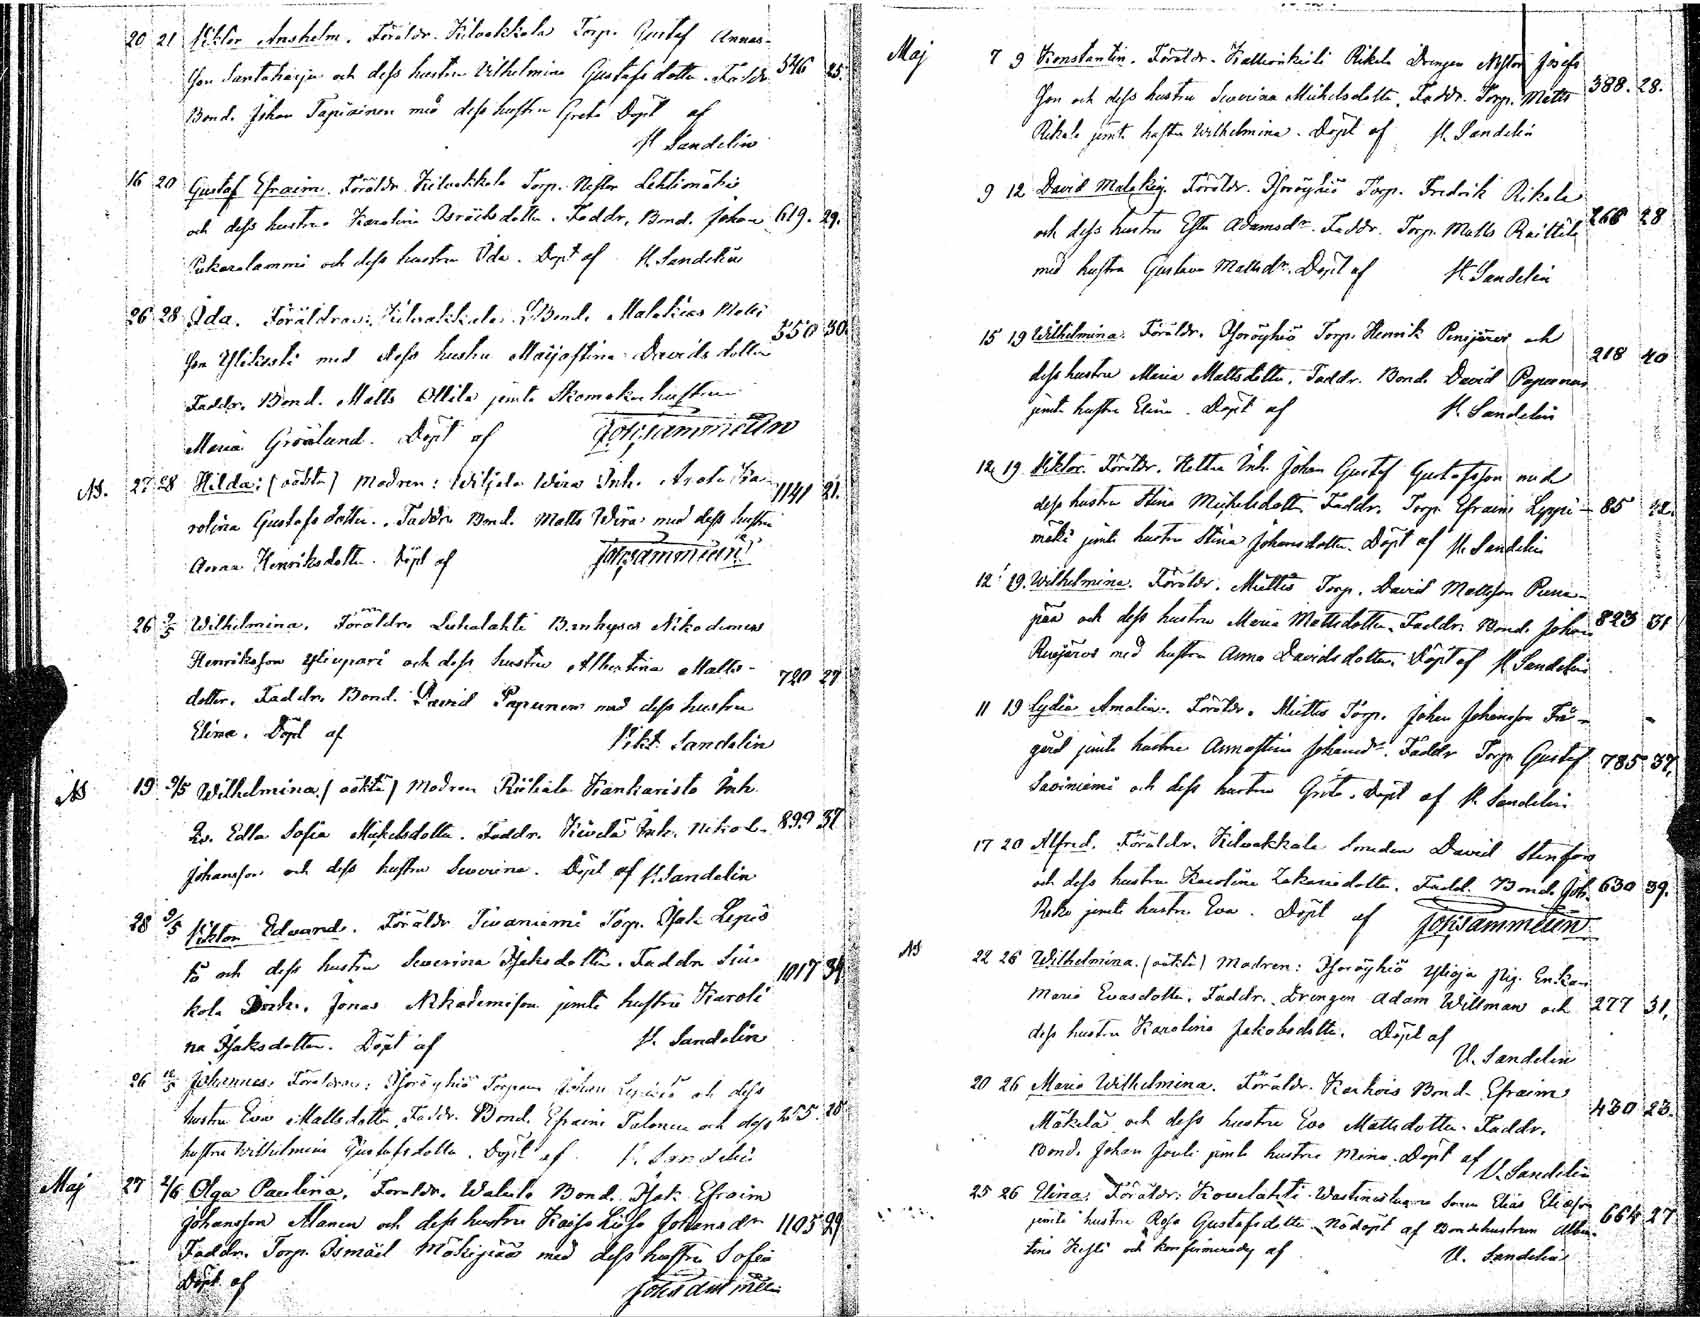 20 21 Viktor Anshelm. Föräldr. Kilvakkala Torp. Gustaf Annas-
son Santaharju och dess hustru Vilhelmina Gustafsdotter. Faddr. 546 25.
Bond. Johan Tapiainen med dess hustru Greta Döpt af
V. Sandelin
16 20 Gustaf Efraim. Föräldr. Kilvakkala Torp. Nestor Lehtimäki
och dess hustru Karolina Isräelsdotter. Faddr. Bond. Johan 619. 29.
Pukaralammi och dess hustru Ida. Döpt af V. Sandelin
26 28 Ida. Föräldrar: Kilvakkala Bond. Malakias Matts
son Ylikoski med dess hustru Majastina Davidsdotter 550 30.
Faddr. Bond. Matts Ollila jemte Skomakar hustrun
Maria Grönlund. Döpt af Joh: Sammelin
NB. 27 28 Hilda: (oäkta) Modren: Viljala Wira Inh. Ka-
rolina Gustafsdotter. Faddr. Bond. Matts Wira med dess hustru 1141 21.
Anna Henriksdotter. Döpt af Joh: Sammelin
26 9/5 Wilhelmina. Föräldr. Luhalahti Nikodemus
Henriksson Yliupari och dess hustru Albertina Matts- 720 27
dotter. Faddr. Bond. David Papunen med dess hustru
Elina. Döpt af Vikt. Sandelin
NB 19 9/5 Wilhelmina. (oäkta) Modren Riitiala Kankaristo Inh.
Edla Sofia Mickelsdotter. Faddr. Kivelä Inh. 899 37
Johansson och dess hustru Severina. Döpt af V. Sandelin
28 9/5 Viktor Edvard. Föräldr. Tevaniemi Torp. Isak Lepis-
tö och dess hustru Severina Isaksdotter. Faddr. 1017 34
Jonas Nikodemisson jemte hustru Karoli
na Isaksdotter. Döpt af V. Sandelin
26 Johannes. Föräldrar: Osoröyhiö Torpare Johan Lepistö och dess
hustru Eva Mattsdotter. Faddr. Bond. Efraim Talonen och dess 255. 28
hustru Wilhelmina Gustafsdotter. Döpt af V. Sandelin
Maj 27 2/6 Olga Paulina. Föräldr. Watula Bond. Isak Efraim
Johansson Alanen och dess hustru Kajsa Lisa Johansdr 1105 29
Faddr. Torp. Ismäel Mäkipää med dess hustru Sofia
Döpt af Joh: Sammelin
Maj 7 9 Konstantin. Föräldr. Kallionkieli Rikala Drengen Nestor Josefs
son och dess hustru Severina Mickelsdotter. Faddr. Torp. Matts 388. 28.
Rikala jemte hustru Wilhelmina. Döpt af V. Sandelin
9 12 David Malakias. Föräldr. Osoröyhiö Torp. Fredrik Rikala
och dess hustru Ester Adamsdr. Faddr. Torp. Matts Raittila 266 28
med hustru Gustava Mattsdr. Döpt af V. Sandelin
15 19 Wilhelmina. Föräldr. Osoröyhiö Torp. Henrik Penijärvi och
dess hustru Maria Mattsdotter. Faddr. Bond. David Papunen 218 40
jemte hustru Elina. Döpt af V. Sandelin
12 19. Viktor. Föräldr. Heittu Inh. Johan Gustaf Gustafsson med
dess hustru Stina Mickelsdotter. Faddr. Torp. Efraim Leppi- 85 42.
mäki jemte hustru Stina Johansdotter. Döpt af V. Sandelin
12 19. Wilhelmina. Föräldr. Miettis Torp. David Mattsson Puna-
pää och dess hustru Maria Mattsdotter. Faddr. Bond. Johan 823 31
Penijärvi med hustru Anna Davidsdotter. Döpt af V. Sandelin
11 19 Lydia Amalia. Föräldr. Miettis Torp. Johan Johansson Trä-
gård jemte hustru Annastina Johansdr. Faddr. Torp. Gustaf 785 37.
Saviniemi och dess hustru Greta. Döpt af V. Sandelin
17 20 Alfred. Föräldr. Kilvakkala Smeden David Stenfors
och dess hustru Karolina Zakariedotter. Faddr. Bond. Joh. 630 39.
Reko jemte hustru Eva. Döpt af Joh: Sammelin
NB 22 26 Wilhelmina. (oäkta) Modren: Osoröyhiö Ylioja Pig. Enkan
Maria Evasdotter. Faddr. Drengen Adam Willman och 277 31.
dess hustru Karolina Jakobsdotter. Döpt af
V. Sandelin
20 26 Maria Wilhelmina. Föräldr. Karhois Bond. Efraim
Mäkelä och dess hustru Eva Mattsdotter. Faddr. 430 23.
Bond. Johan Jouti jemte hustru Mina. Döpt af
V. Sandelin
25 26 Elina. Föräldr. Kovelahti Elias Eliasson
jemte hustru Rosa Gustafsdotter Nöddöpt af Bondehustrun Alber- 664 27
tina och konfirmerad af V. Sandelin